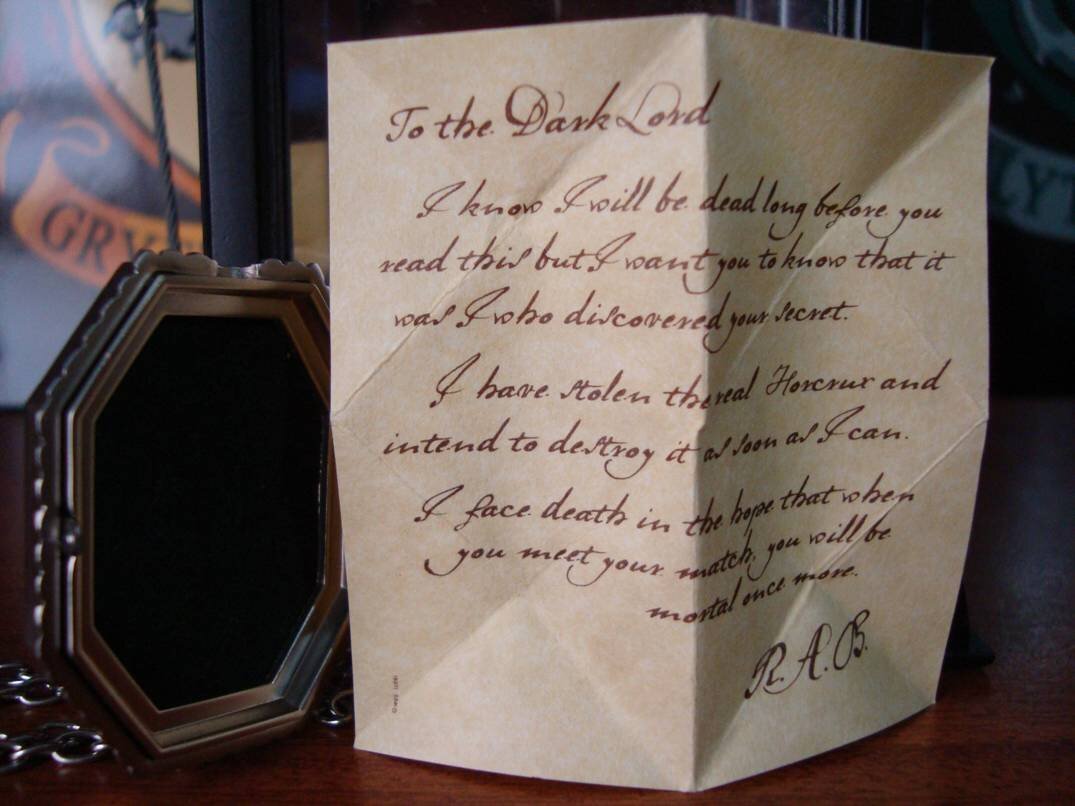 To the Dark Lord
I know I will be dead long before you
read this but I want you to know that it
was I who discovered your secret.
I have stolen the real Horcrux and
intend to destroy it as soon as I can.
I face death in the hope that when
you meet your match, you will be
mortal once more.
R.A.B.
GRY
LYT